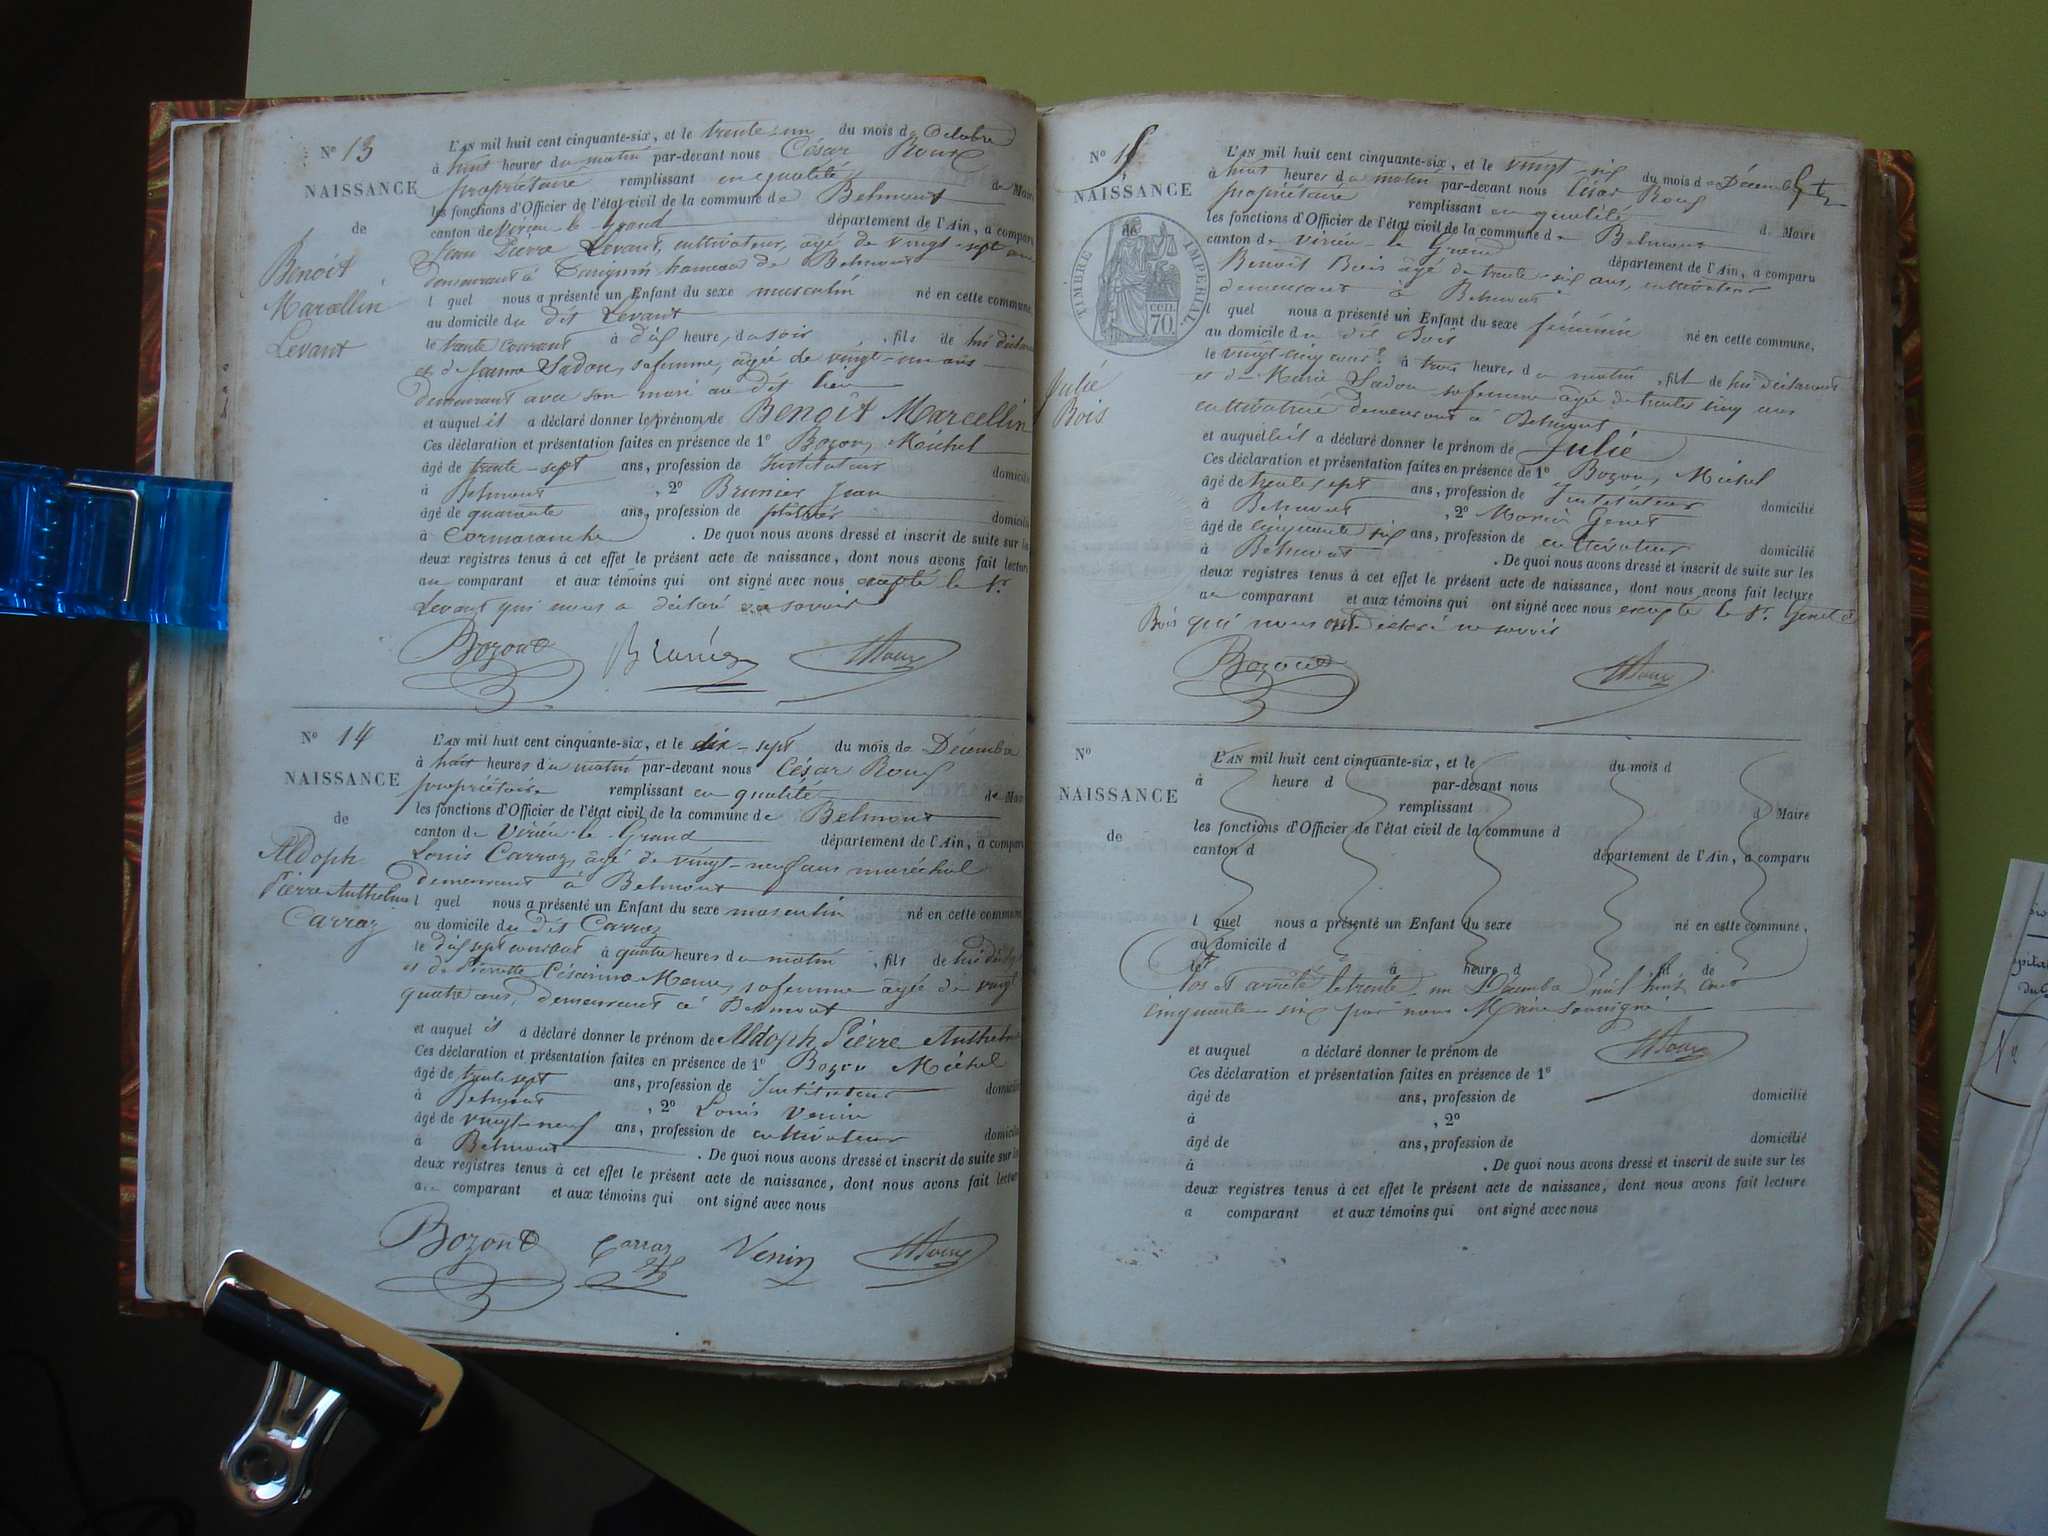 N° 13
NAISSANCE
de
Benoit
Marcellin
Levant
L'AN mil huit cent cinquante-six, et le trente un du mois de Octobre
à huit heures du matin par-devant nous César Roux
propriétaire remplissant en qualité de Maire
les fonctions d'Officier de l'état civil de la commune de Belmont
canton de Virieu-le-Grand département de l'Ain, a comparu
Jean Pierre Levant, cultivateur, âgé de vingt-sept ans
demeurant à hameau de Belmont
l quel nous a présenté un Enfant du sexe masculin né en cette commune,
au domicile du dit Levant
le trente courant à dix heure, du soir, fils de lui déclarant
et de Jeanne Sadou, sa femme, âgée de vingt-un ans
demeurant avec son mari au dit lieu
et auquel il a déclaré donner le prénom de Benoît Marcellin
Ces déclaration et présentation faites en présence de 1° Bozon, Michel
âgé de trente-sept ans, profession de Instituteur domicilié
à Belmont, 2° Brunier Jean
âgé de quarante ans, profession de plâtrier domicilié
à Cormaranche. De quoi nous avons dressé et inscrit de suite sur les
deux registres tenus à cet effet le présent acte de naissance, dont nous avons fait lecture
au comparant et aux témoins qui ont signé avec nous excepté le Sr.
Levant qui nous a déclaré ne savoir
Bozon Brunier Roux
N° 14
NAISSANCE
de
Aldoph
Pierre Anthelme
Carraz
L'AN mil huit cent cinquante-six, et le dix-sept du mois de Décembre
à huit heures du matin par-devant nous César Roux
propriétaire remplissant en qualité de Maire
les fonctions d'Officier de l'état civil de la commune de Belmont
canton de Virieu-le-Grand département de l'Ain, a comparu
Louis Carraz, âgé de vingt-neuf ans maréchal
demeurant à Belmont
l quel nous a présenté un Enfant du sexe masculin né en cette commune,
au domicile du dit Carraz
le dix sept courant à quatre heures du matin, fils de lui
et de Pierrette Césarine sa femme âgée de vingt
quatre ans, demeurant à Belmont
et auquel il a déclaré donner le prénom de Aldoph Pierre Anthelme
Ces déclaration et présentation faites en présence de 1° Bozon Michel
âgé de trente sept ans, profession de Instituteur domicilié
à Belmont, 2° Louis Venin
âgé de vingt-neuf ans, profession de cultivateur domicilié
à Belmont. De quoi nous avons dressé et inscrit de suite sur les
deux registres tenus à cet effet le présent acte de naissance, dont nous avons fait lecture
au comparant et aux témoins qui ont signé avec nous
Bozon Carraz Venin Roux
N° 15
NAISSANCE
de
TIMBRE IMPÉRIAL.
CEN. 70.
Julie
Bois
L'AN mil huit cent cinquante-six, et le vingt-six du mois de Décembre
à huit heures du matin par-devant nous César Roux
propriétaire remplissant en qualité d Maire
les fonctions d'Officier de l'état civil de la commune de Belmont
canton de Virieu-le-Grand département de l'Ain, a comparu
Benoît Bois âgé de trente-six ans, cultivateur
demeurant à Belmont
l quel nous a présenté un Enfant du sexe féminin né en cette commune,
au domicile du dit Bois
le vingt-cinq courant à trois heures du matin, fill de lui déclarant
et de Marie Sadou sa femme âgée de trente cinq ans
cultivatrice demeurant à Belmont
et auquel il a déclaré donner le prénom de Julie
Ces déclaration et présentation faites en présence de 1° Bozon, Michel
âgé de trente sept ans, profession de Instituteur domicilié
à Belmont, 2° Genet
âgé de cinquante six ans, profession de cultivateur domicilié
à Belmont. De quoi nous avons dressé et inscrit de suite sur les
deux registres tenus à cet effet le présent acte de naissance, dont nous avons fait lecture
au comparant et aux témoins qui ont signé avec nous excepté le Sr. Genet et
Bois qui nous ont déclaré ne savoir
Bozon Roux
N°
NAISSANCE
de
L'AN mil huit cent cinquante-six, et le du mois d
à heure d par-devant nous
remplissant d Maire
les fonctions d'Officier de l'état civil de la commune d
canton d département de l'Ain, a comparu
l quel nous a présenté un Enfant du sexe né en cette commune,
au domicile d
le à heure d fil de
Clos et arrêté le trente-un Décembre mil huit cent
cinquante-six par nous Maire soussigné
Roux
et auquel a déclaré donner le prénom de
Ces déclaration et présentation faites en présence de 1°
âgé de ans, profession de domicilié
à , 2°
âgé de ans, profession de domicilié
à . De quoi nous avons dressé et inscrit de suite sur les
deux registres tenus à cet effet le présent acte de naissance, dont nous avons fait lecture
a comparant et aux témoins qui ont signé avec nous